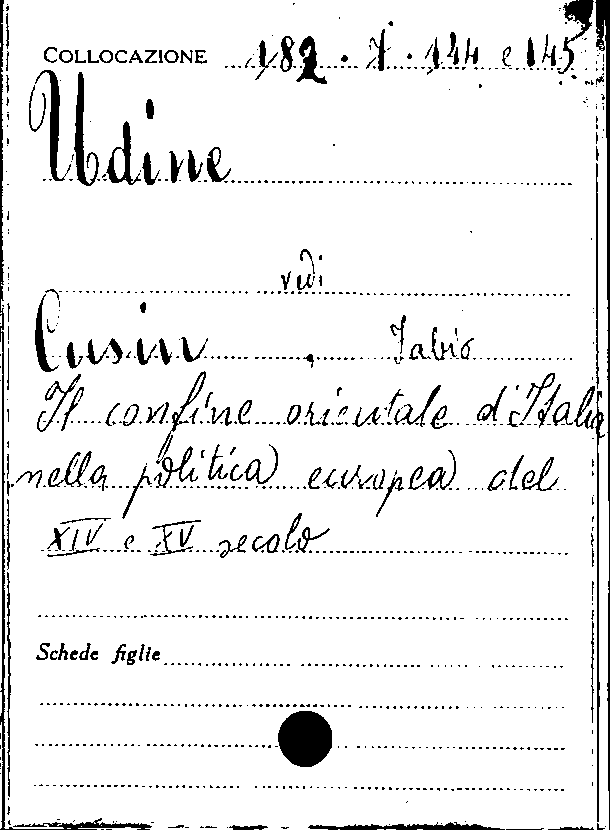 COLLOCAZIONE 182. 7. 144 e 145
Udine
vidi
Cusin, Fabio
Il confine orientale d'Italia
nella politica europea del
XIV e XV secolo
Schede figlie